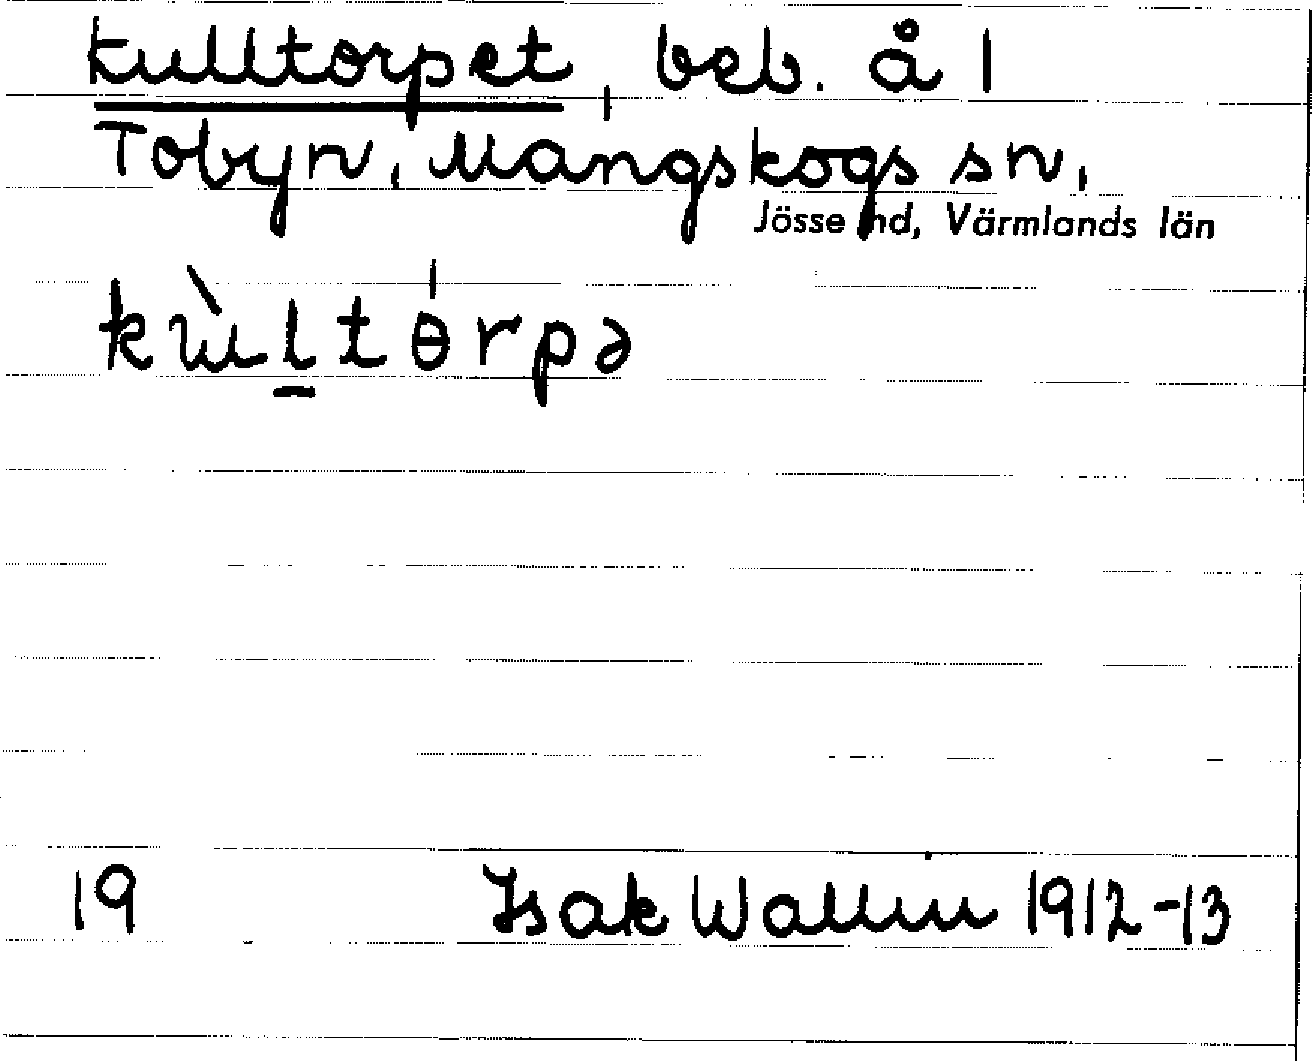 Kulltorpet, beb. å 1
Tobyn, Mangskogs sn,
Jösse hd, Värmlands län
kùl̠tɵ́rpə
19 Isak Wallin 1912-13